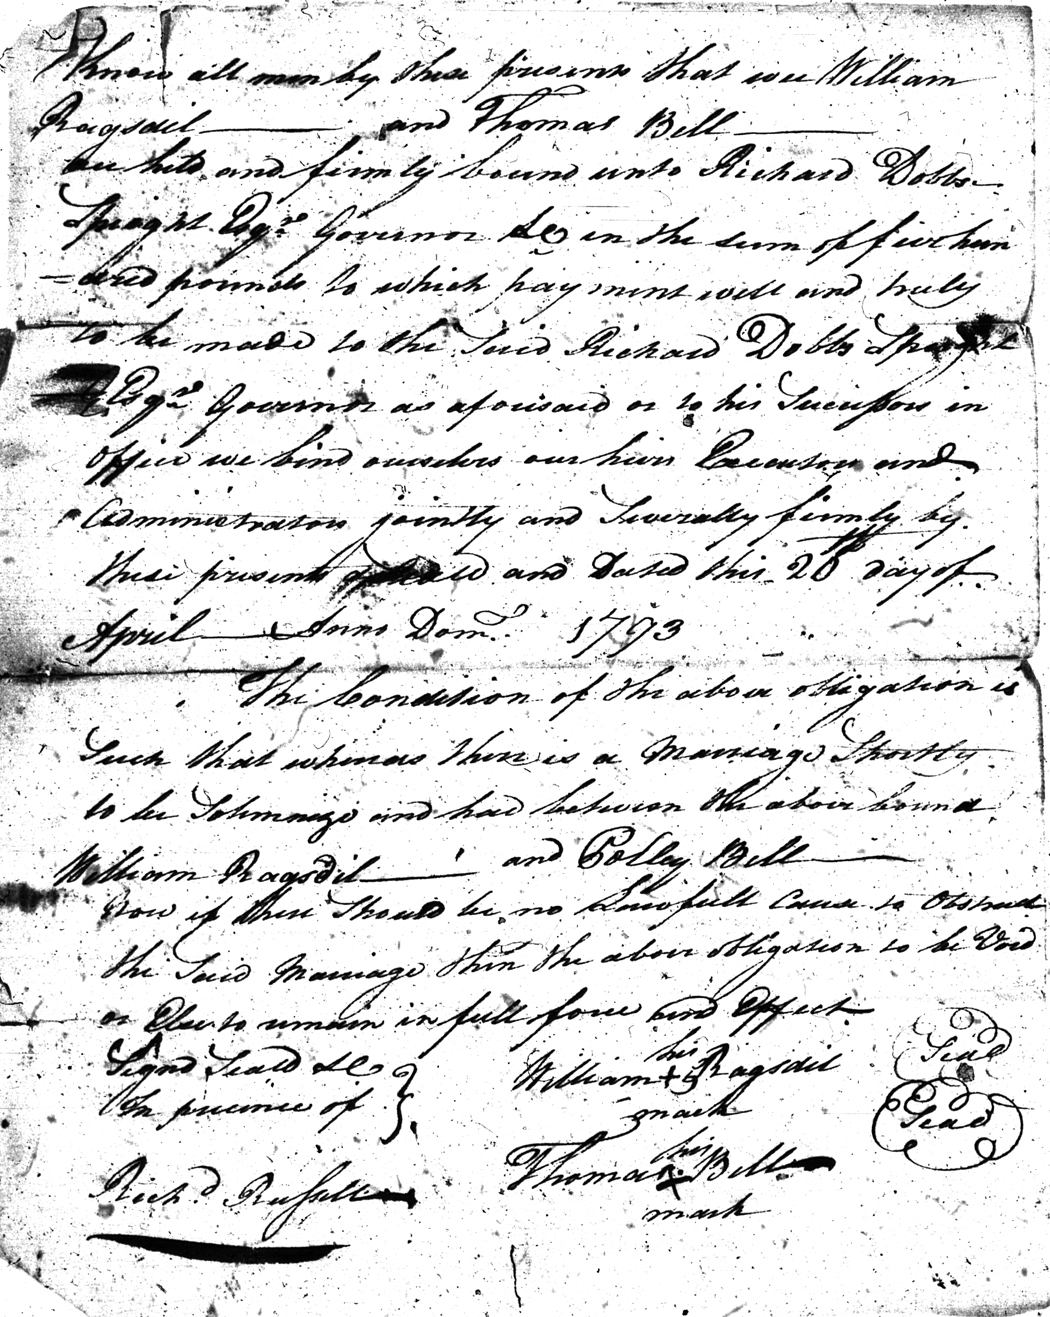 Know all men by these presents that wee William
Ragsdil and Thomas Bell
are held and firmly bound unto Richard Dobbs
Speight Esqr. Governor &c in the sum of five hun
=dred pounds to which payment well and truly
to be made to the Said Richard Dobbs Speight
Esqr. Governor as aforesaid or to his Successors in
office we bind ourselves our heirs Executors and
Administrators jointly and Severally firmly by
these presents and Dated this 20th day of
April Anno Dom. 1793
The Condition of the above obligation is
Such that whereas there is a Marriage Shortly
to be Solemnize and had between the above bound
William Ragsdil and Polley Bell
Now if there Should be no Lawfull Cause to Obstruct
the Said Marriage then the above obligation to be Void
or Else to remain in full force and Effect
Signd Seald &c
In precince of
William his + Ragsdil Seal
mark
Thomas his x Bell Seal
mark
Richd. Russell